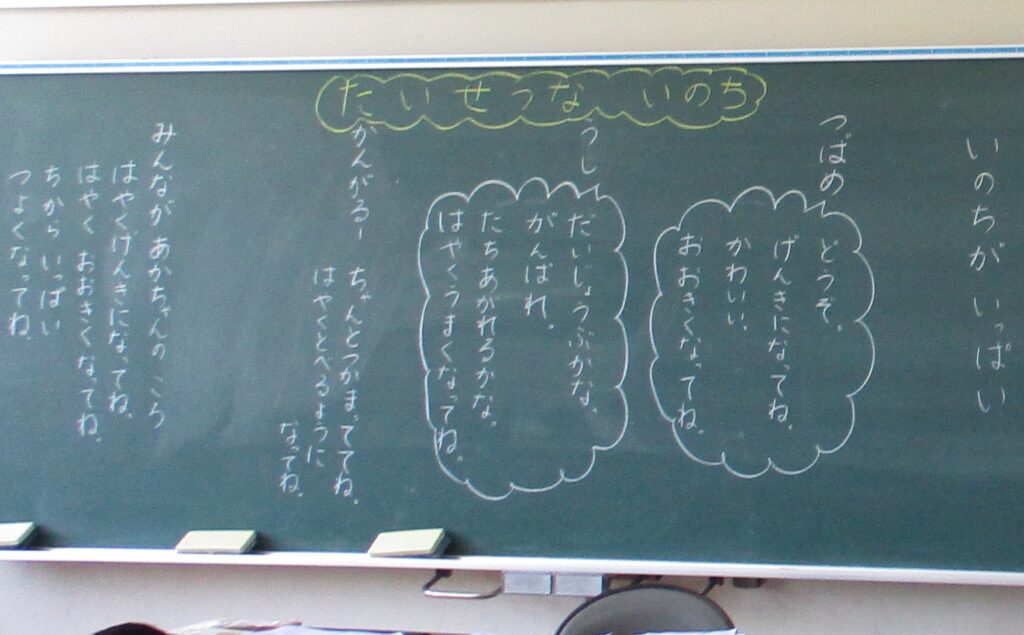 たいせつな いのち
いのちが いっぱい
つばめ
どうぞ。
げんきになってね。
かわいい。
おおきくなってね。
うし
だいじょうぶかな。
がんばれ。
たちあがれるかな。
はやくうまくなってね。
かんがるー
ちゃんとつかまっててね。
はやくとべるように
なってね。
みんなが あかちゃんの ころ
はやくげんきになってね。
はやく おおきくなってね。
ちから いっぱい
つよくなってね。